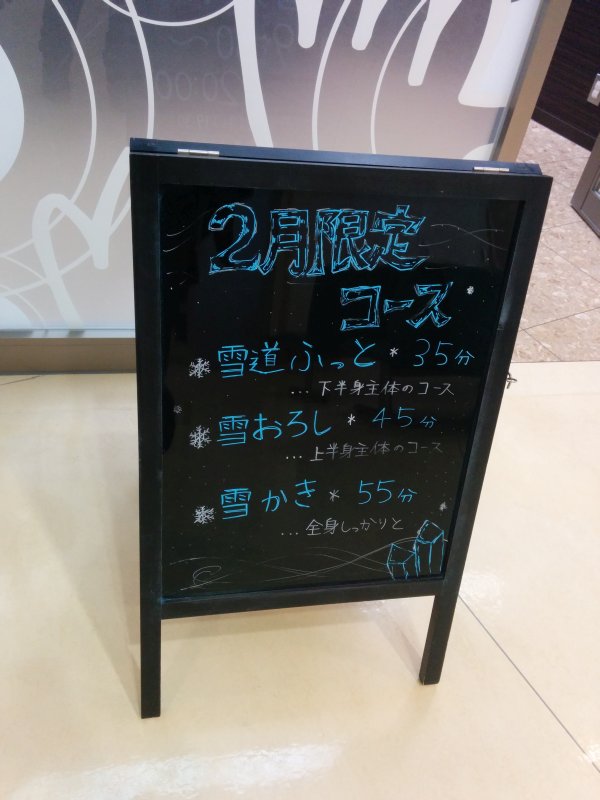 2月限定
コース
雪道ふっと * 35分
…下半身主体のコース
雪おろし * 45分
…上半身主体のコース
雪かき * 55分
…全身しっかりと
20:00